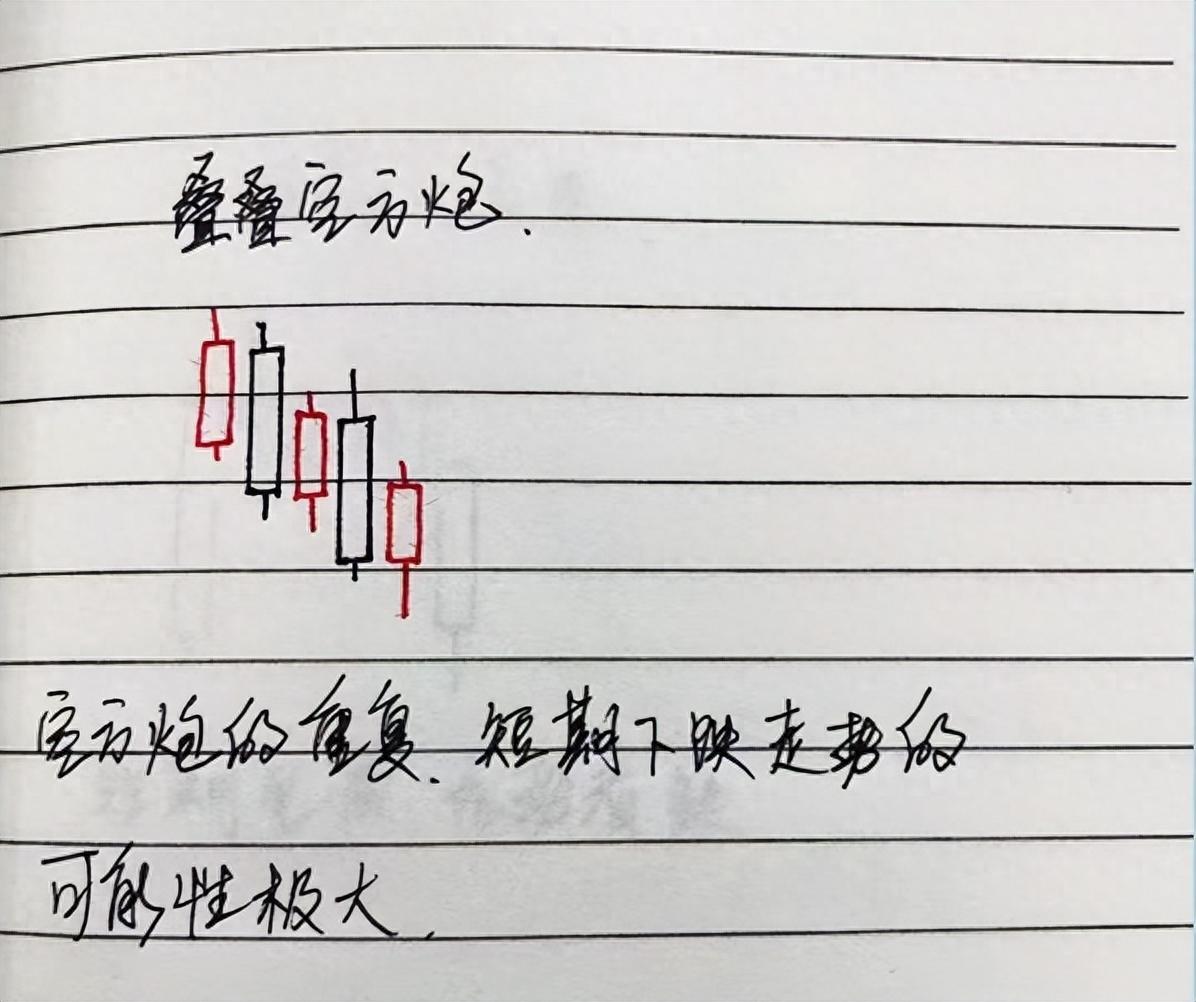 叠叠空方炮.
空方炮的重复.短期下跌走势的
可能性极大.